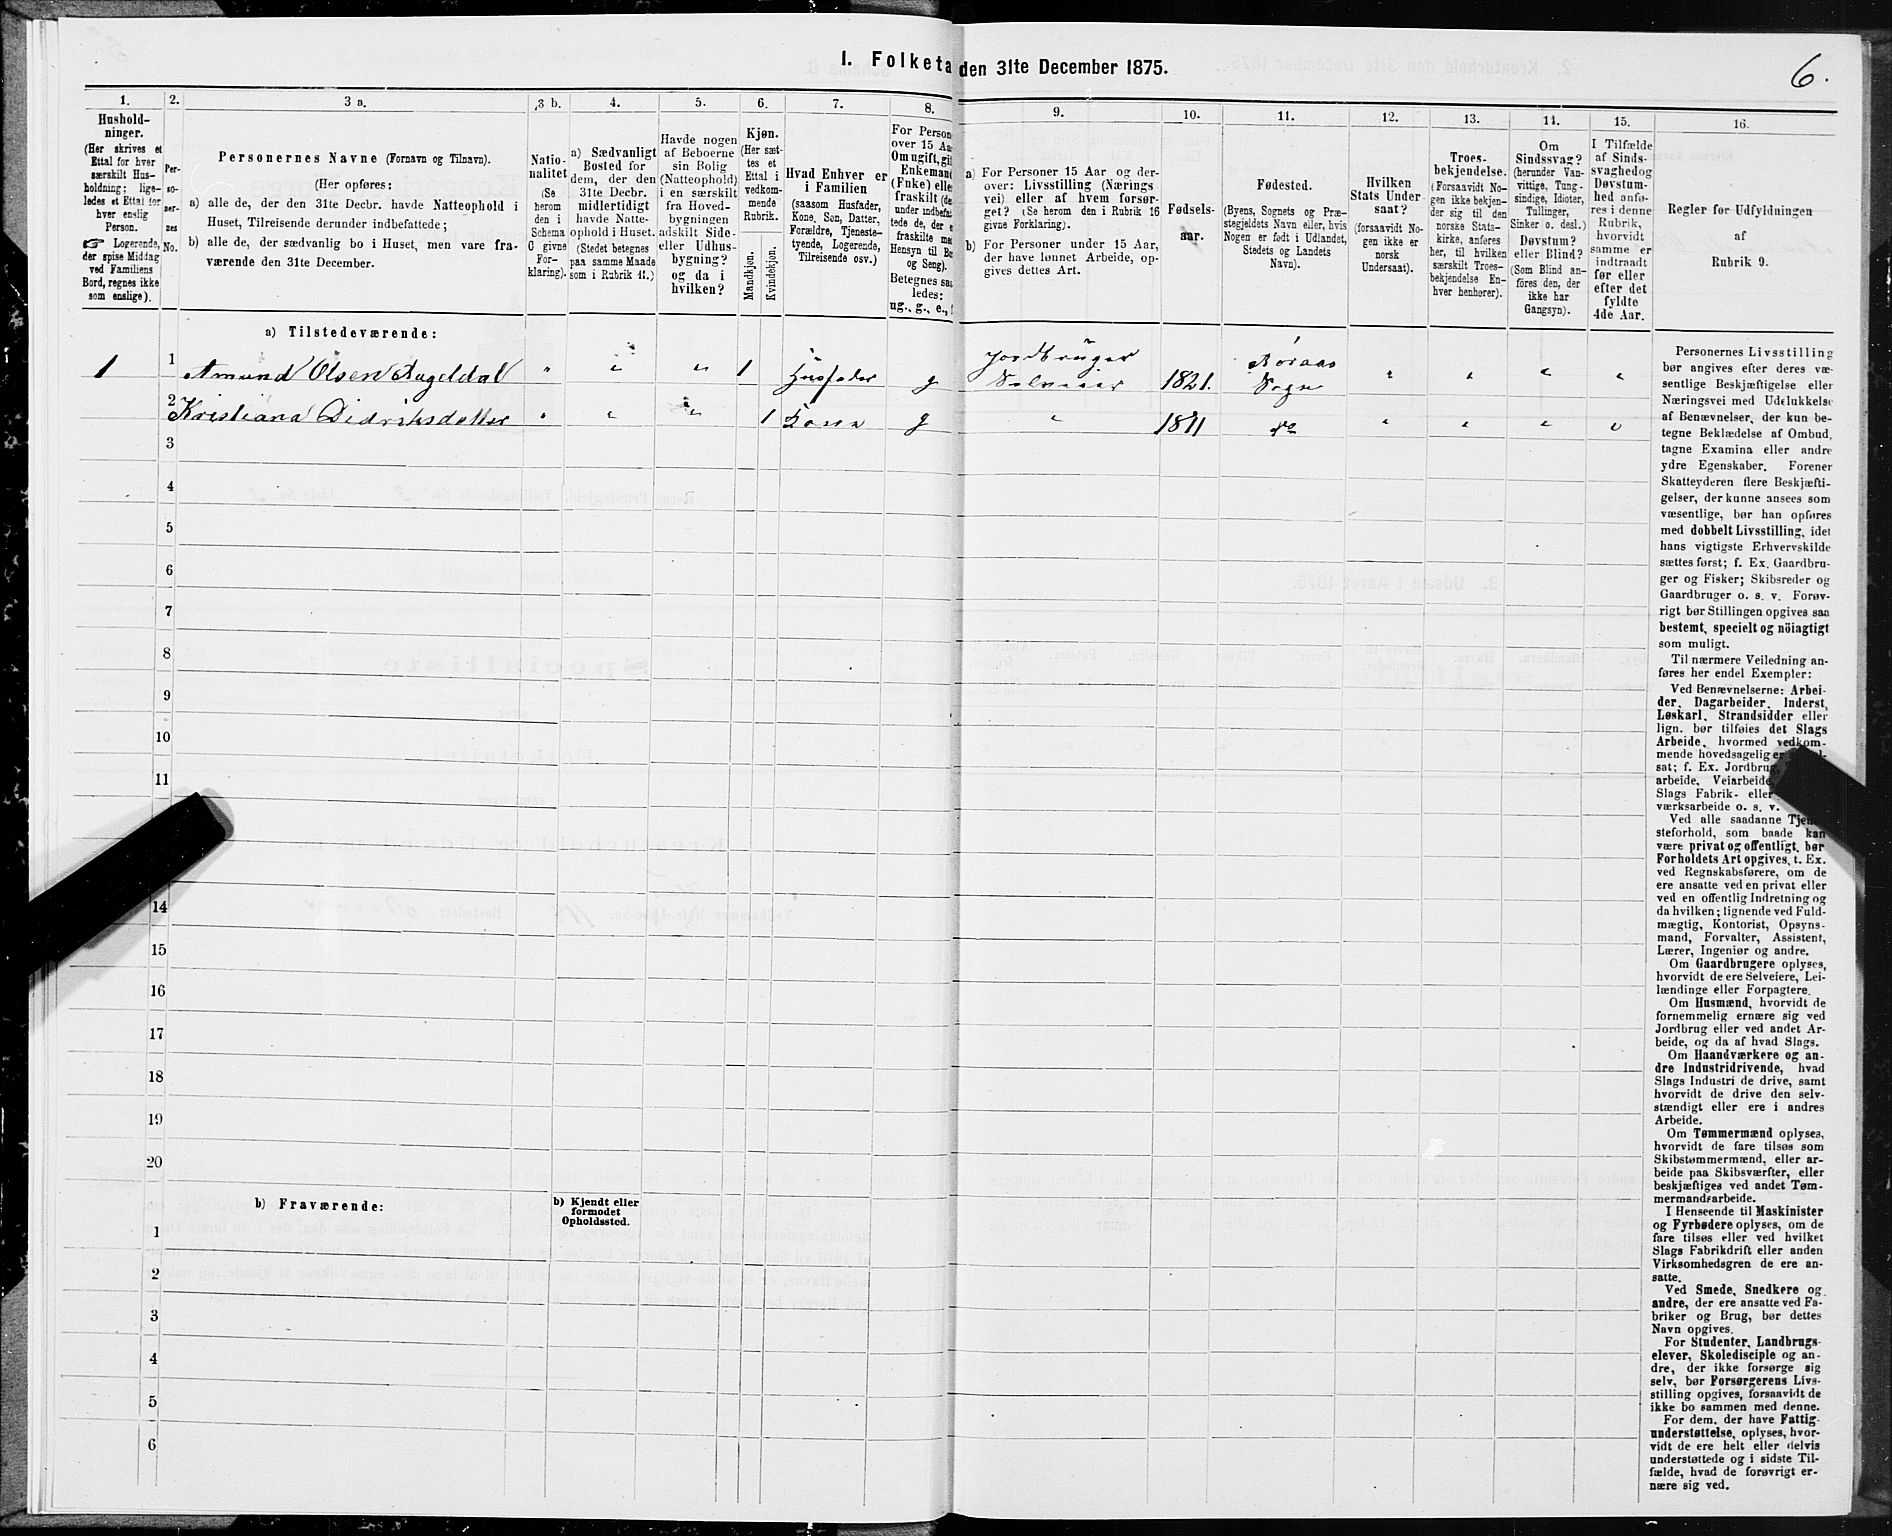 I. Folketa den 31te December 1875.
6.
1.
2.
3 a.
3 b.
4.
5.
6.
7.
8.
9.
10.
11.
12.
13.
14.
15.
16.
Hushold-
ninger.
(Her skrives et
Ettal for hver
særskilt Hus-
holdning; lige-
ledes et Ettal for
hver enslig
Person.
☞ Logerende,
der spise Middag
ved Familiens
Bord, regnes ikke
som enslige).
Per-
so-
ner-
nes
No.
Personernes Navne (Fornavn og Tilnavn).
(Her opføres:
a) alle de, der den 31te Decbr. havde Natteophold i
Huset, Tilreisende derunder indbefattede;
b) alle de, der sædvanlig bo i Huset, men vare fra-
værende den 31te December.
Natio-
nalitet
(Se
herom
den i
Schema
C givne
For-
klaring).
a) Sædvanligt
Bosted for
dem, der den
31te Decbr.
midlertidigt
havde Natte-
ophold i Huset.
(Stedet betegnes
paa samme Maade
som i Rubrik 11.)
Havde nogen
af Beboerne
sin Bolig
(Natteophold)
i en særskilt
fra Hoved-
bygningen
adskilt Side-
eller Udhus-
bygning?
og da i
hvilken?
Kjøn.
(Her sæt-
tes et
Ettal i
vedkom-
mende
Rubrik.
Mandkjøn.
Kvindekjøn.
Hvad Enhver er
i Familien
(saasom Husfader,
Kone, Søn, Datter,
Forældre, Tjeneste-
tyende, Logerende,
Tilreisende osv.)
For Person
over 15 Aa
Om ugift, gif
Enkeman
(Enke) elle
fraskilt (de
under indbefat
tede de, der e
fraskilte me
Hensyn til Bo
og Seng).
Betegnes saa
ledes:
ug., g., e.,
a) For Personer 15 Aar og der-
over: Livsstilling (Nærings
vei) eller af hvem forsør-
get? (Se herom den i Rubrik 16
givne Forklaring).
b) For Personer under 15 Aar,
der have lønnet Arbeide, op-
gives dettes Art.
Fødsels-
aar.
Fødested.
(Byens, Sognets og Præ-
stegjeldets Navn eller, hvis
Nogen er født i Udlandet,
Stedets og Landets
Navn).
Hvilken
Stats Under
saat?
(forsaavidt No-
gen ikke er
norsk
Undersaat).
Troes-
bekjendelse.
(Forsaavidt No-
gen ikke bekjen-
der sig til den
norske Stats-
kirke, anføres
her, til hvilken
særskilt Troes-
bekjendelse En-
hver henhører).
Om
Sindssvag?
(herunder Van-
vittige, Tung-
sindige, Idioter,
Tullinger,
Sinker o. desl.)
Døvstum?
eller Blind?
(Som Blind an-
føres den, der
ikke har
Gangsyn).
I Tilfælde
af Sinds-
svaghed og
Døvstum-
hed anfø-
res i denne
Rubrik,
hvorvidt
samme er
indtraadt
før eller
efter det
fyldte
4de Aar.
Regler for Udfyldningen
af
Rubrik 9.
a) Tilstedeværende:
1 1 Amund Olsen " " " 1 Husfader g Jordbruger Selveier 1821. Røraas Sogn " " " "
2 Kristiana Didriksdatter " " " 1 Kone g " 1811 do " " " "
3
4
5
6
7
8
9
10
11
14
15
16
17
18
19
20
b) Fraværende:
b) Kjendt eller
formodet
Opholdssted.
1
2
3
4
5
6
Personernes Livsstilling
bør angives efter deres væ-
sentlige Beskjæftigelse eller
Næringsvei med Udelukkelse
af Benævnelser, der kun be-
tegne Beklædelse af Ombud,
tagne Examina eller andre
ydre Egenskaber. Forener
Skatteyderen flere Beskjæfti-
gelser, der kunne ansees som
væsentlige, bør han opføres
med dobbelt Livsstilling, idet
hans vigtigste Erhvervskilde
sættes først; f. Ex. Gaardbru-
ger og Fisker; Skibsreder og
Gaardbruger o. s. v. Forøv-
rigt bør Stillingen opgives saa
bestemt, specielt og nöiagtigt
som muligt.
Til nærmere Veiledning an-
føres her endel Exempler:
Ved Benævnelserne: Arbei-
der, Dagarbeider, Inderst,
Løskarl, Strandsidder eller
lign. bør tilføies det Slags
Arbeide, hvormed vedkom-
mende hovedsagelig er
sat; f. Ex. Jordbrug
arbeide, Veiarbeide
Slags Fabrik- eller
værksarbeide o. s. v.
Ved alle saadanne Tjen
steforhold, som baade kan
være privat og offentligt, bør
Forholdets Art opgives, t. Ex.
ved Regnskabsførere, om de
ere ansatte ved en privat eller
ved en offentlig Indretning og
da hvilken; lignende ved Fuld-
mægtig, Kontorist, Opsyns-
mand, Forvalter, Assistent,
Lærer, Ingeniør og andre.
Om Gaardbrugere oplyses,
hvorvidt de ere Selveiere, Lei-
lændinge eller Forpagtere.
Om Husmænd, hvorvidt de
fornemmelig ernære sig ved
Jordbrug eller ved andet Ar-
beide, og da af hvad Slags.
Om Haandværkere og an-
dre Industridrivende, hvad
Slags Industri de drive, samt
hvorvidt de drive den selv-
stændigt eller ere i andres
Arbeide.
Om Tømmermænd oplyses,
hvorvidt de fare tilsøs som
Skibstømmermænd, eller ar-
beide paa Skibsværfter, eller
beskjæftiges ved andet Tøm-
mermandsarbeide.
I Henseende til Maskinister
og Fyrbødere oplyses, om de
fare tilsøs eller ved hvilket
Slags Fabrikdrift eller anden
Virksomhedsgren de ere an-
satte.
Ved Smede, Snedkere og
andre, der ere ansatte ved Fa-
briker og Brug, bør dettes
Navn opgives.
For Studenter, Landbrugs-
elever, Skoledisciple og an-
dre, der ikke forsørge sig
selv, bør Forsørgerens Livs-
stilling opgives, forsaavidt de
ikke bo sammen med denne.
For dem, der have Fattig-
understøttelse, oplyses, hvor-
vidt de ere helt eller delvis
understøttede og i sidste Til-
fælde, hvad de forøvrigt er-
nære sig ved.